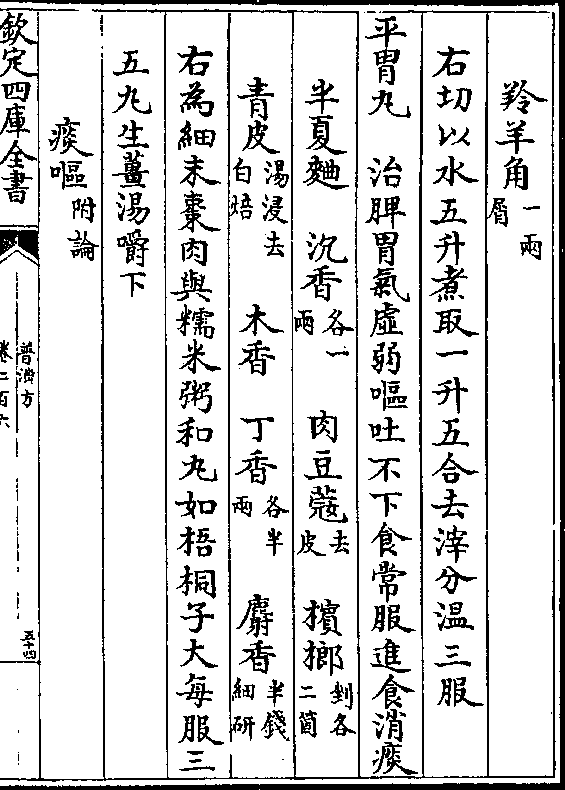 羚羊角一兩屑
右切以水五升煮取一升五合去滓分温三服
平胃丸　治脾胃氣虛弱嘔吐不下食常服進食消痰
半夏麯　沉香各一兩　肉豆蔻去皮　檳榔剉各二箇
青皮湯浸去白焙　木香　丁香各半兩　麝香半錢細研
右為細末棗肉與糯米粥和丸如梧桐子大每服三
五丸生薑湯嚼下
痰嘔附論
欽定四庫全書
普濟方
卷二百六
五十四